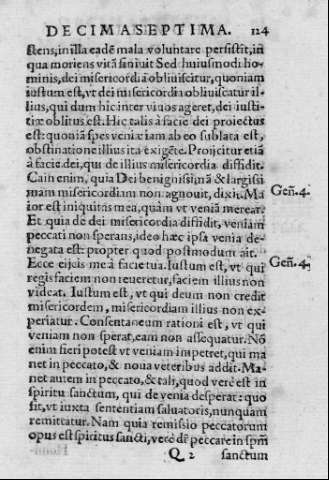 DECIMASEPTIMA. 124
stens, in illa eadē mala voluntate persistit, in
qua moriens vitā finiuit Sed huiusmodi ho-
minis, dei misericordia obliuiscitur, quoniam
iustum est, vt dei misericordia obliuiscatur il-
lius, qui dum hic inter viuos ageret, dei iusti-
tiæ oblitus est. Hic talis à facie dei proiectus
est: quoniā spes veniæ iam ab eo sublata est,
obstinatione illius ita exigēte. Proijcitur etiā
à facie dei, qui de illius misericordia diffidit.
Cain enim, quia Dei benignissimā & largissi
mam misericordiam non agnouit, dixit. Ma Geñ. 4.
ior est iniquitas mea, quàm vt veniā merear.
Et quia de dei misericordia diffidit, veniam
peccati non sperans, ideo hæc ipsa venia de-
negata est: propter quod postmodum ait.
Ecce eijcis me à facie tua. Iustum est, vt qui Geñ. 4.
regis faciem non reueretur, faciem illius non
videat. Iustum est, vt qui deum non credit
misericordem, misericordiam illius non ex-
periatur. Consentaneum rationi est, vt qui
veniam non sperat, eam non assequatur. Nō
enim fieri potest vt veniam impetret, qui ma
net in peccato, & noua veteribus addit. Ma-
net autem in peccato, & tali, quod verè est in
spiritu sanctum, qui de venia desperat: quo
fit, vt iuxta sententiam saluatoris, nunquam
remittatur. Nam quia remissio peccatorum
opus est spiritus sancti, verè dr̄ peccare in spm̄
Q 2 sanctum